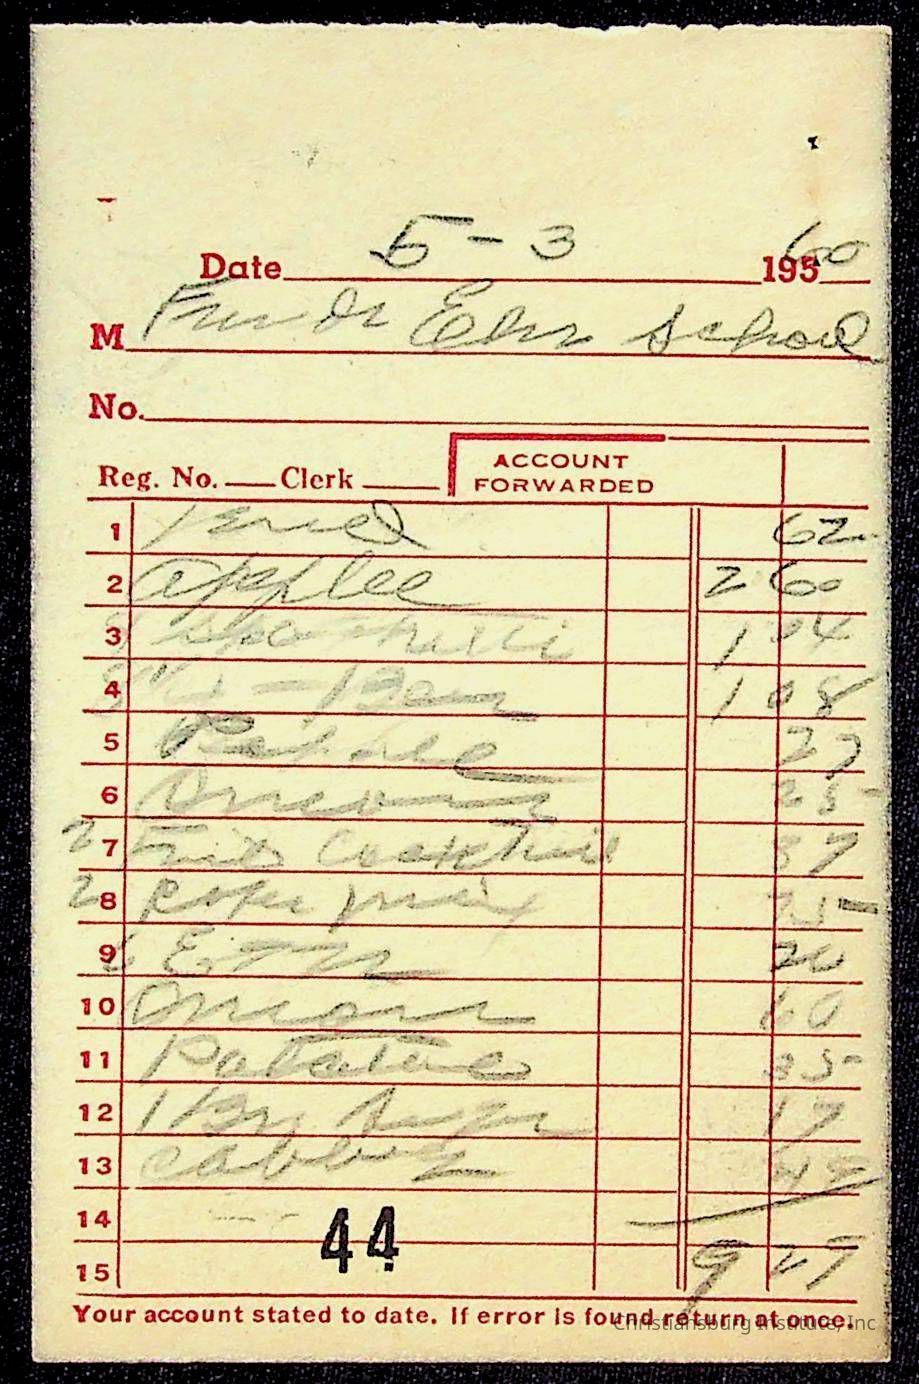 Date 5 - 3 195 60
M Elem School
No.
Reg. No. Clerk
ACCOUNT
FORWARDED
1 Bread 62
2 apples 2 60
3 Spaghetti 1 04
4 1 08
5 27
6 Onions 25
7 2 Fruit Cocktail 37
8 2 mix
9 20
10 Onions 60
11 Potatoes 35
12 1 Br Sugar 17
13 Cabbage
14
15 9 27
44
Your account stated to date. If error is found return at once.
Christiansburg Institute, Inc